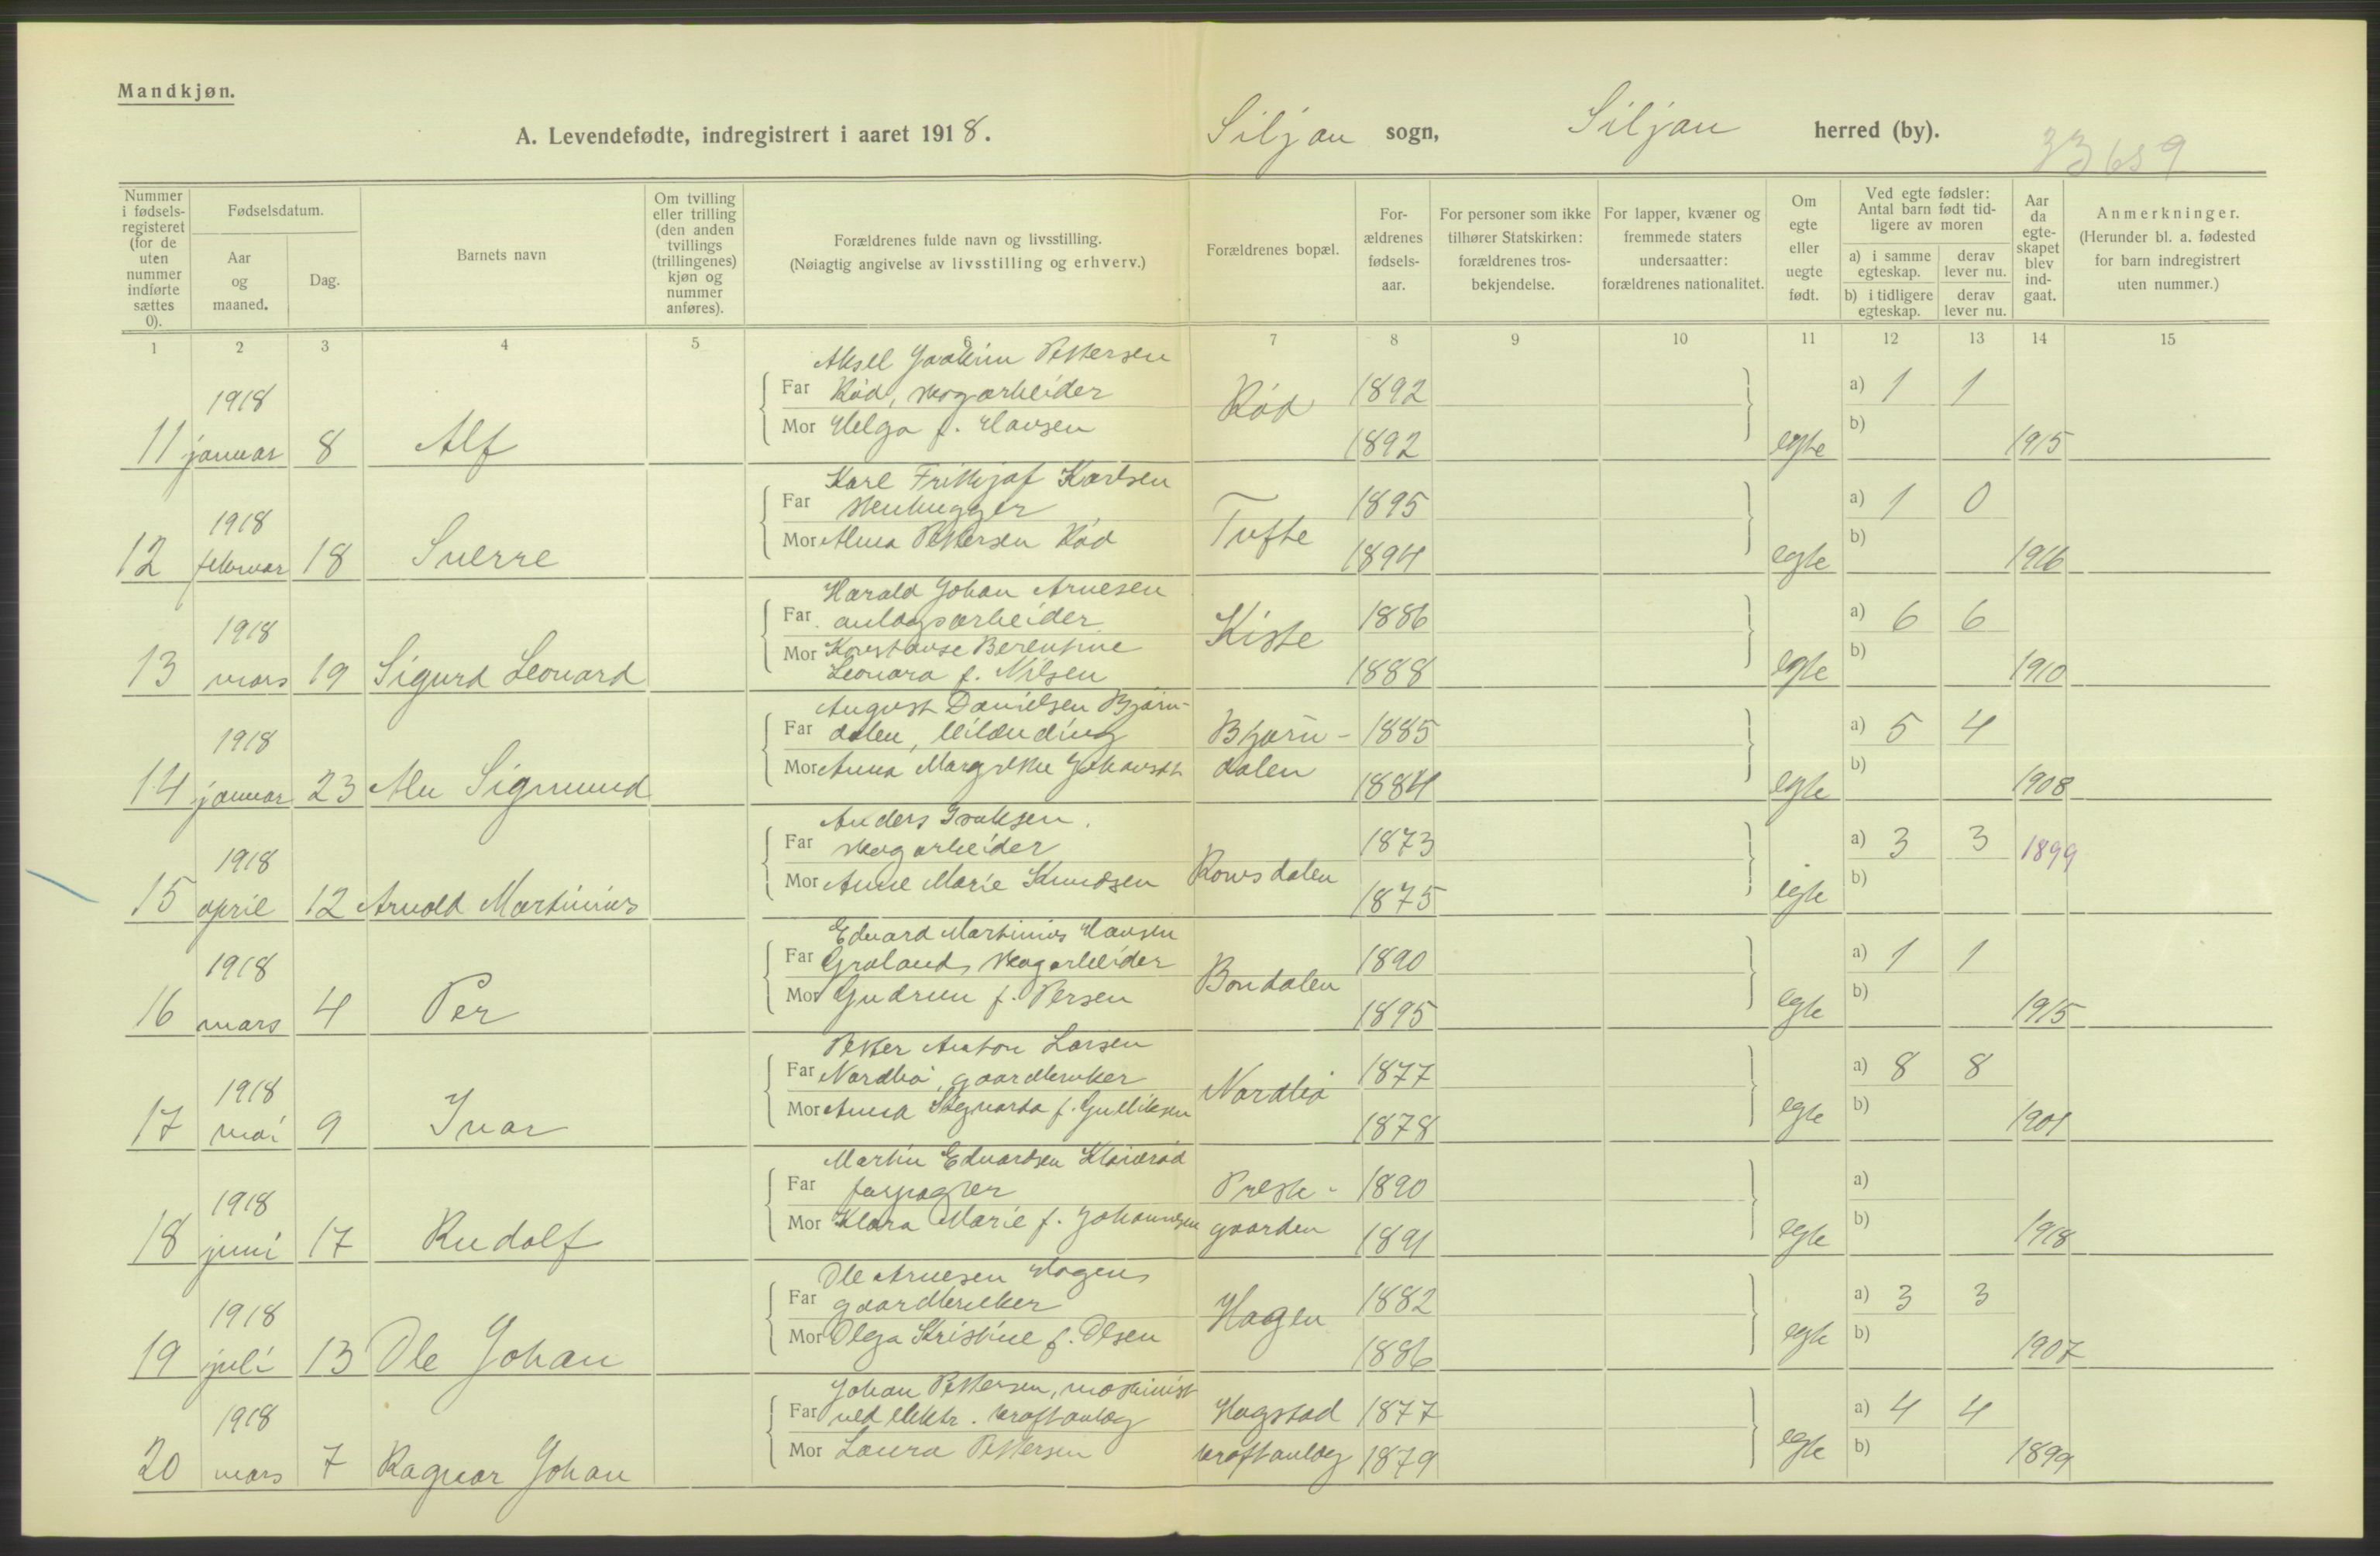 Mandkjøn.
A. Levendefødte, indregistrert i aaret 1918.
Siljan sogn, Siljan herred (by).
33659
Nummer i fødsels-registeret (for de uten nummer indførte sættes 0).
Fødselsdatum.
Aar og maaned.
Dag.
Barnets navn
Om tvilling eller trilling (den anden tvillings (trillingenes) kjøn og nummer anføres).
Forældrenes fulde navn og livsstilling.
(Nøiagtig angivelse av livsstilling og erhverv.)
Forældrenes bopæl.
For-ældrenes fødsels-aar.
For personer som ikke tilhører Statskirken: forældrenes tros-bekjendelse.
For lapper, kvæner og fremmede staters undersaatter: forældrenes nationalitet.
Om egte eller uegte født.
Ved egte fødsler: Antal barn født tid-ligere av moren
a) i samme egteskap.
derav lever nu.
b) i tidligere egteskap.
derav lever nu.
Aar da egte-skapet blev ind-gaat.
Anmerkninger.
(Herunder bl. a. fødested for barn indregistrert uten nummer.)
1 2 3 4 5 6 7 8 9 10 11 12 13 14 15
Aksel Joakim Pettersen
1918 Far Kød, skogarbeider Kød 1892 a) 1 1
Mor Helga f. Hansen b)
11 januar 8 Alf 1892 egte 1915
Karl Frithjof Karlsen
1918 Far stenhugger Tufte 1895 a) 1 0
Mor Alma Pettersen Kød b)
12 februar 18 Sverre 1894 egte 1916
Harald Johan Arnesen
1918 Far anlægsarbeider Kiste 1886 a) 6 6
Mor Konstanse Berentine b)
13 mars 19 Sigurd Leonard Leonora f. Nilsen 1888 egte 1910
August Danielsen Bjørn-
1918 Far dalen, leilænding Bjørn- 1885 a) 5 4
Mor Anna Margrethe dalen b)
14 januar 23 Sigmund 1884 egte 1908
Anders Isaksen.
1918 Far skogarbeider 1873 a) 3 3 1899
Mor Anne Marie Knudsen b)
15 april 12 Arnold Martinius 1875 egte
Edvard Martinius Hansen
1918 Far skogarbeider Bondalen 1890 a) 1 1
Mor Gudrun f. Persen b)
16 mars 4 Per 1895 egte 1915
Petter Anton Larsen
1918 Far Nordbø, gaardbruker Nordbø 1877 a) 8 8
Mor Anna Sigvarda f. Gulliksen b)
17 mai 9 Ivar 1878 egte 1901
Martin Edvardsen
1918 Far forpagter Preste- 1890 a)
Mor Klara Marie f. Johannesen gaarden b)
18 juni 17 Rudolf 1891 egte 1918
Ole Arnesen Hagen,
1918 Far gaardbruker Hagen 1882 a) 3 3
Mor Olga Kristine f. Olsen b)
19 juli 13 Ole Johan 1886 egte 1907
Johan Pettersen, maskinist
1918 Far ved elektr. kraftanlæg Hogstad 1877 a) 4 4
Mor Laura Pettersen kraftanlæg 1879 b)
20 mars 7 Ragnar Johan egte 1899